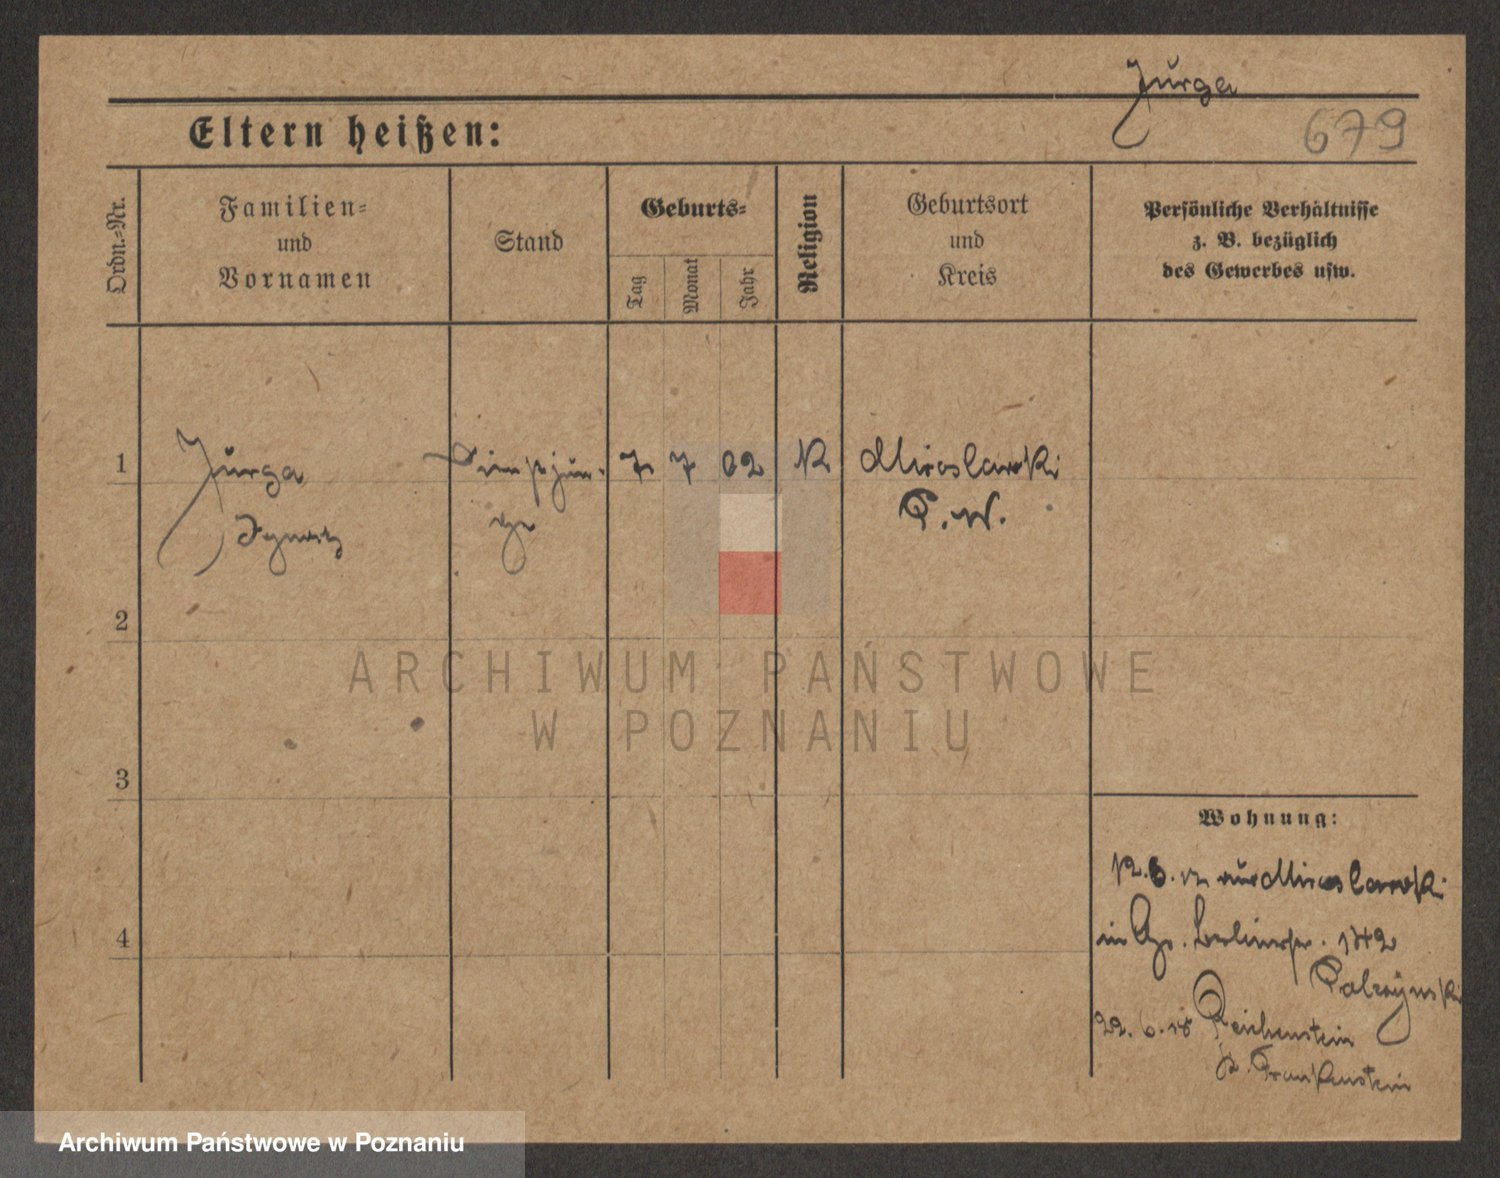 Jurga
Eltern heißen:
679
Ordn.-Nr.
Familien-
und
Vornamen
Stand
Geburts-
Tag
Monat
Jahr
Religion
Geburtsort
und
Kreis
Persönliche Verhältnisse
z. B. bezüglich
des Gewerbes usw.
1
Jurga
7 7 02
K
Miroslawki
P. W.
2
ARCHIWUM PAŃSTWOWE
W POZNANIU
3
Wohnung:
12. 6. Miroslawki
4
in 142
22. 6. 18 Reichenstein
Frankenstein
Archiwum Państwowe w Poznaniu